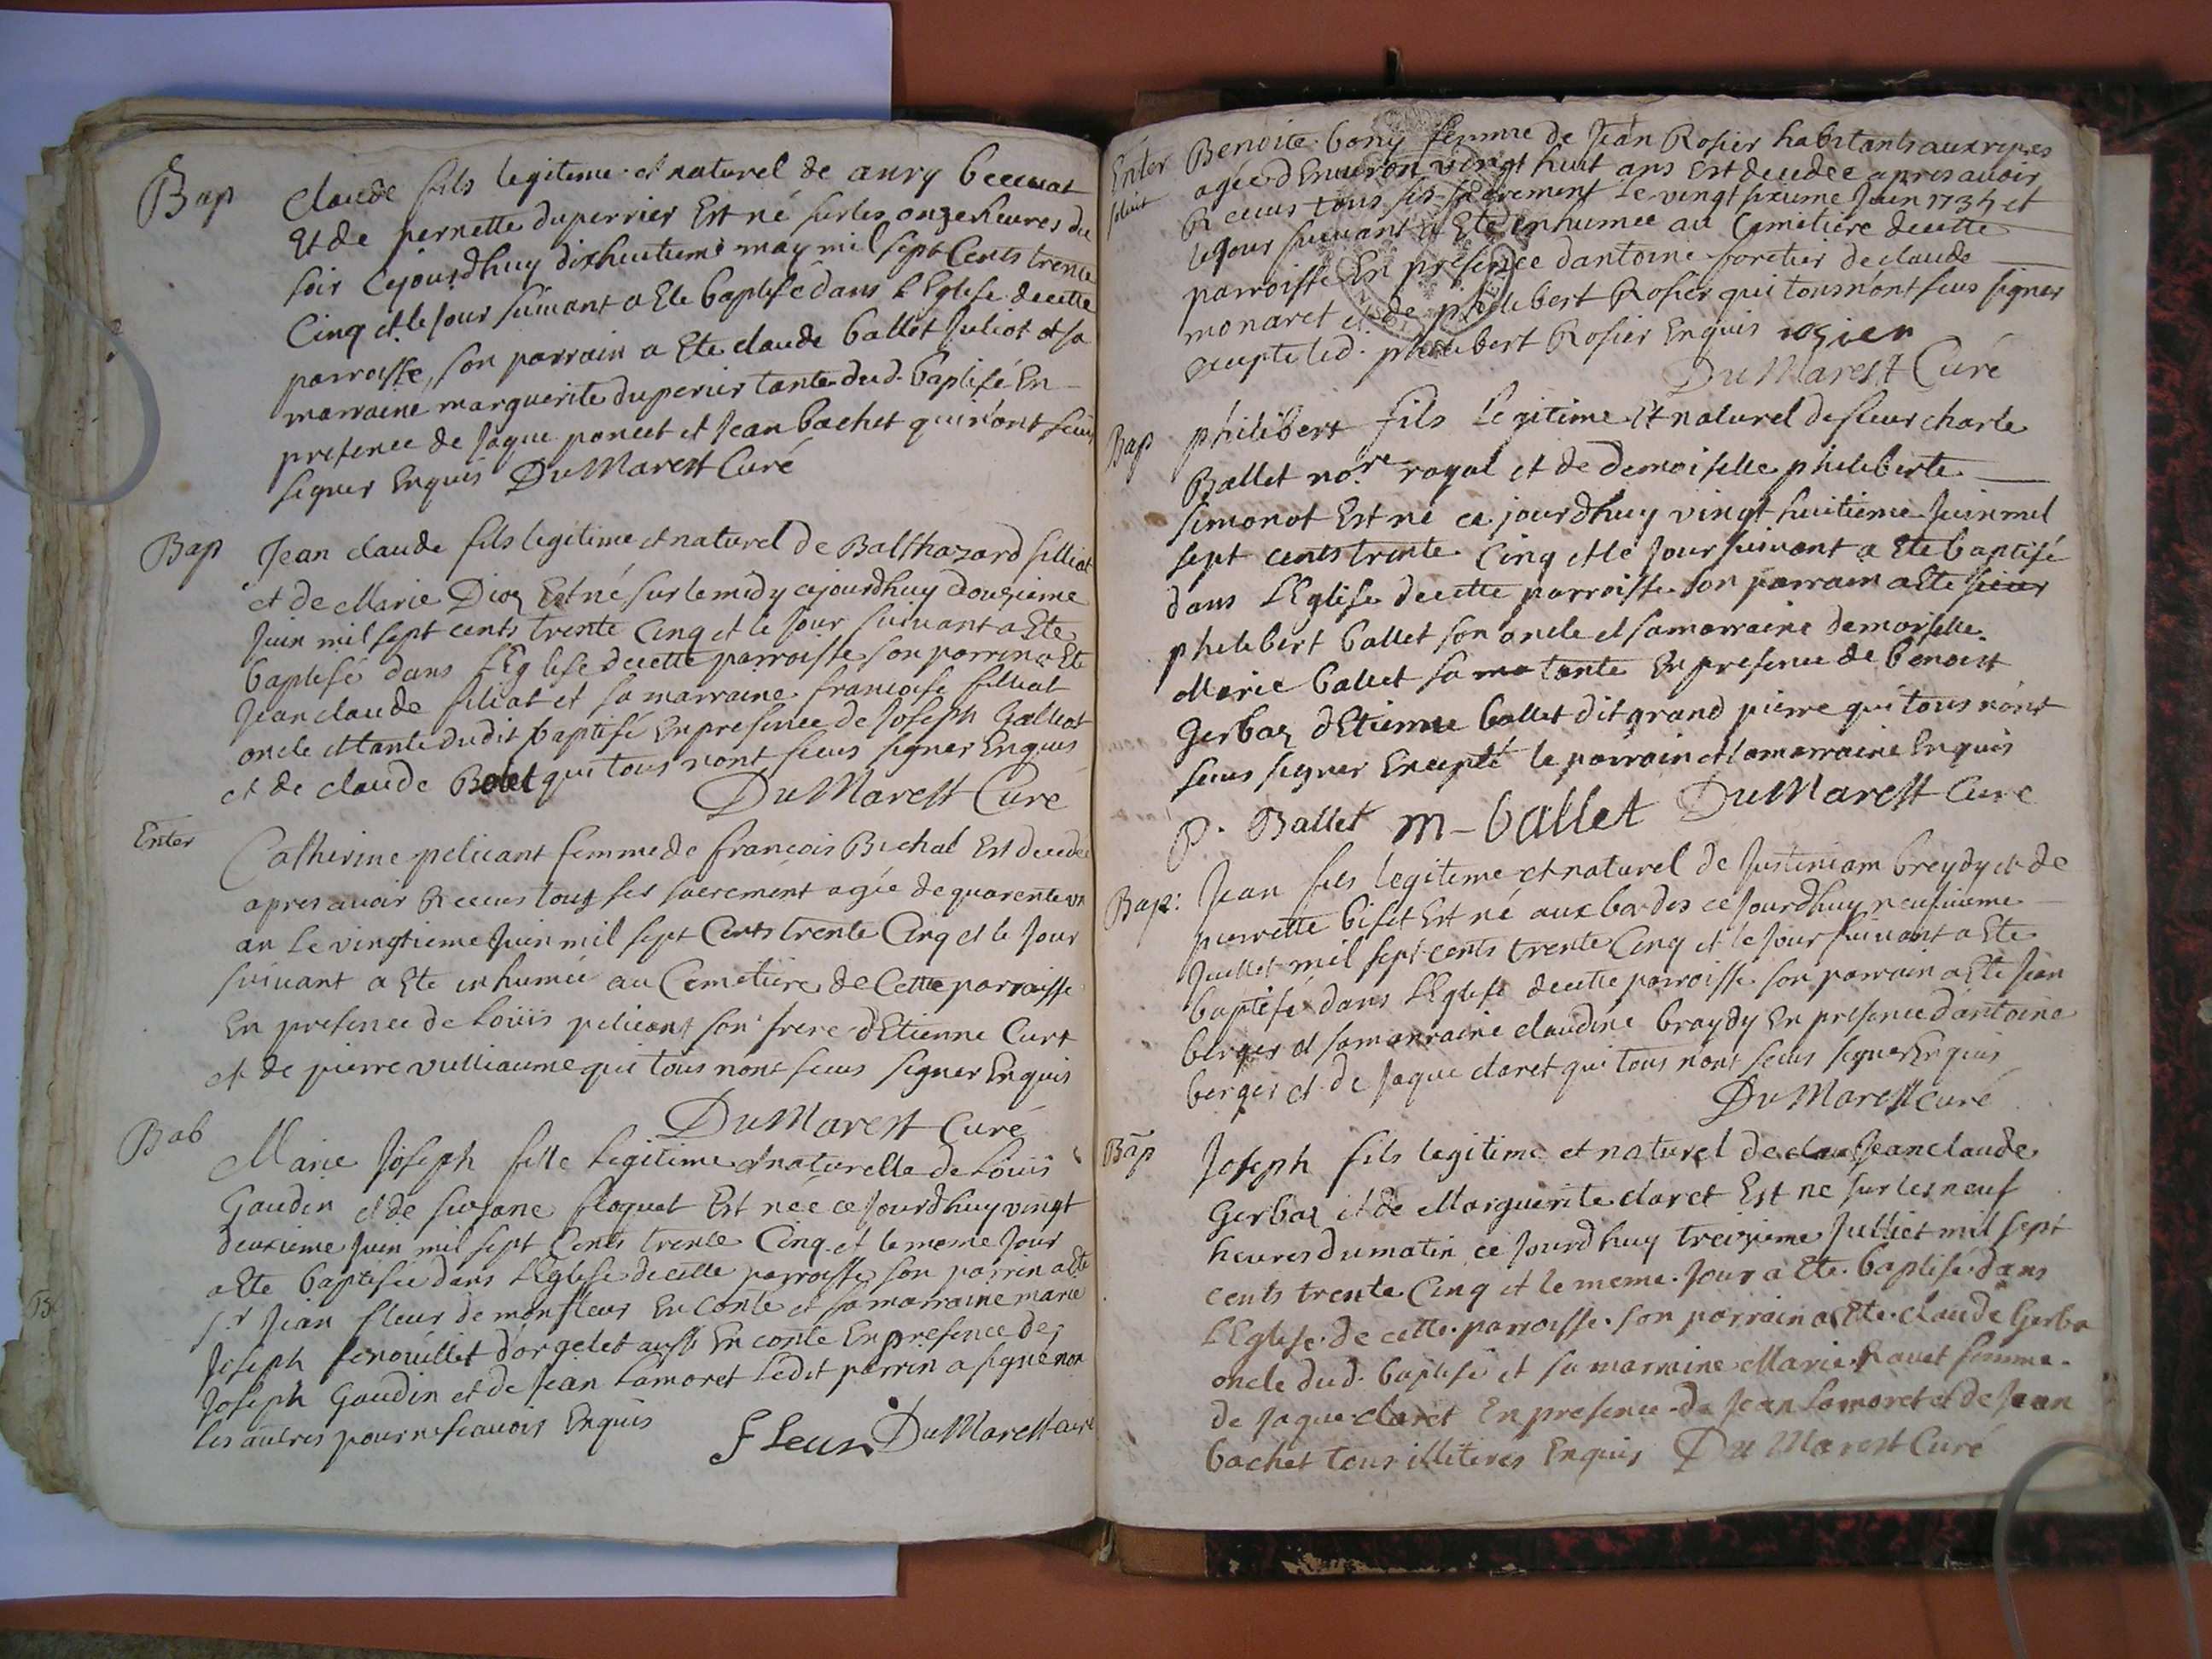 Bap
Claude fils legitime et naturel de anry beccuat
Et de pernette duperrier Est né sur les onze heures du
soir Cejourdhuy dixhuitieme may mil sept Cents trente
Cinq et le Jour suivant a Ete baptisé dans L'Eglise de cette
parroisse, son parrain a Ete claude ballet Juliot et sa
marraine marguerite duperier tante dud. baptisé En
presence de Jaque poncet et Jean bachet qui n'ont seus
signer Enquis DuMarest Curé
Bap
Jean claude fils legitime et naturel de Balthazard filliat
et de Marie Dioz Est né sur le midy cejourdhuy douzieme
Juin mil sept cents trente Cinq et le Jour suivant a Ete
baptisé dans L'Eglise de cette parroisse son parrin a Ete
Jean claude filiat et sa marraine francoise filliat
oncle et tante dudit baptisé En presence de Joseph Galliat
et de claude Bolet qui tous n'ont seus signer Enquis
DuMarest Curé
Enter
Catherine pelicant femme de francois Buchal Est decedée
apres avoir Receus tous ses sacrement agée de quarente un
an Le vingtieme Juin mil sept Cents trente Cinq et le Jour
suivant a Ete inhumée au Cemetiere de Cette parroisse
En presence de Loüis pelicant son frere d'Etienne Curt
et de pierre vulliaume qui tous n'ont seus signer Enquis
DuMarest Curé
Bab
Marie Joseph fille Legitime et naturelle de Loüis
Gaudin et de susane floquet Est née ce Jourdhuy vingt
deuxieme Juin mil sept Cents trente Cinq et le meme Jour
a Ete baptisée dans L'Eglise de cette parroisse son parrin a Ete
sr Jean fleur de monfleur En Conté et sa marraine marie
Joseph fenoüillet d'orgelet aussi En conté En presence de
Joseph Gaudin et de Jean Lamoret Ledit parrin a signé non
les autres pour ne scavoir Enquis
fleur DuMarest curé
Enter
Benoite bony femme de Jean Rosier habitants aux repes
agée d'Environ vingt huit ans Est decedée apres avoir
Receus tous ses sacrement Le vingt sixieme Juin 1735 et
le Jour suivant a Ete inhumée au Cemetiere de cette
parroisse En presence d'antoine foretier de claude
monaret et de philebert Rosier qui tous n'ont seus signer
excepté led. philebert Rosier Enquis rosier
DuMarest Curé
Bap
philibert fils Legitime et naturel de sieur charle
Ballet no.re royal et de demoiselle pheliberte
simonot Est né ce jourdhuy vingt huitieme Juin mil
sept cents trente Cinq et le Jour suivant a Ete baptisé
dans L'Eglise de cette parroisse son parrain a Ete sieur
phelibert ballet son oncle et sa marraine demoiselle
Marie ballet sa tante En presence de benoist
Gerbaz d'Etienne ballet dit grand pierre qui tous n'ont
seus signer Excepté le parrain et la marraine Enquis
P. Ballet m-ballet DuMarest Curé
Bap:
Jean fils legitime et naturel de Justiniam breydy et de
pierrette biset Est né aux bordes ce Jourdhuy neufvieme
Juillet mil sept cents trente Cinq et le Jour suivant a Ete
baptisé dans L'Eglise de cette parroisse son parrain a Ete Jean
berger et sa marraine claudine braydy En presence d'antoine
berger et de Jaque claret qui tous n'ont seus signer Enquis
DuMarest curé
Bap
Joseph fils legitime et naturel de Jean claude
Gerbaz et de Marguerite claret Est né sur les neuf
heures du matin ce Jourdhuy treizieme Julliet mil sept
cents trente Cinq et le meme Jour a Ete baptisé dans
L'Eglise de cette parroisse son parrain a Ete claude Gerba
oncle dud. baptisé et sa marraine Marie Ravet femme
de Jaque claret En presence de Jean Lamoret et de Jean
bachet tous illiteres Enquis DuMarest Curé